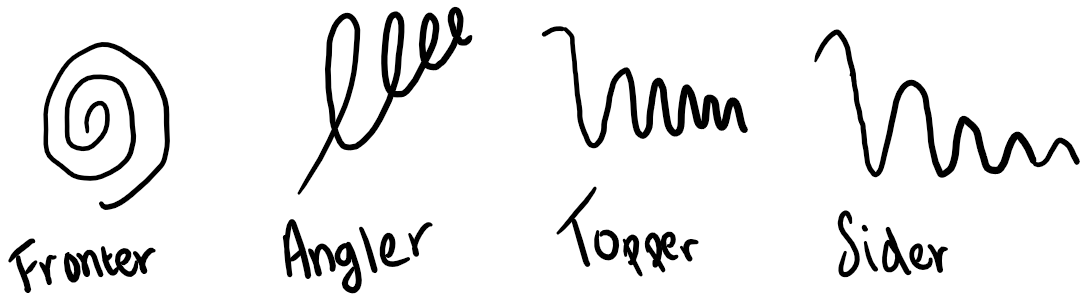 Fronter Angler Topper Sider